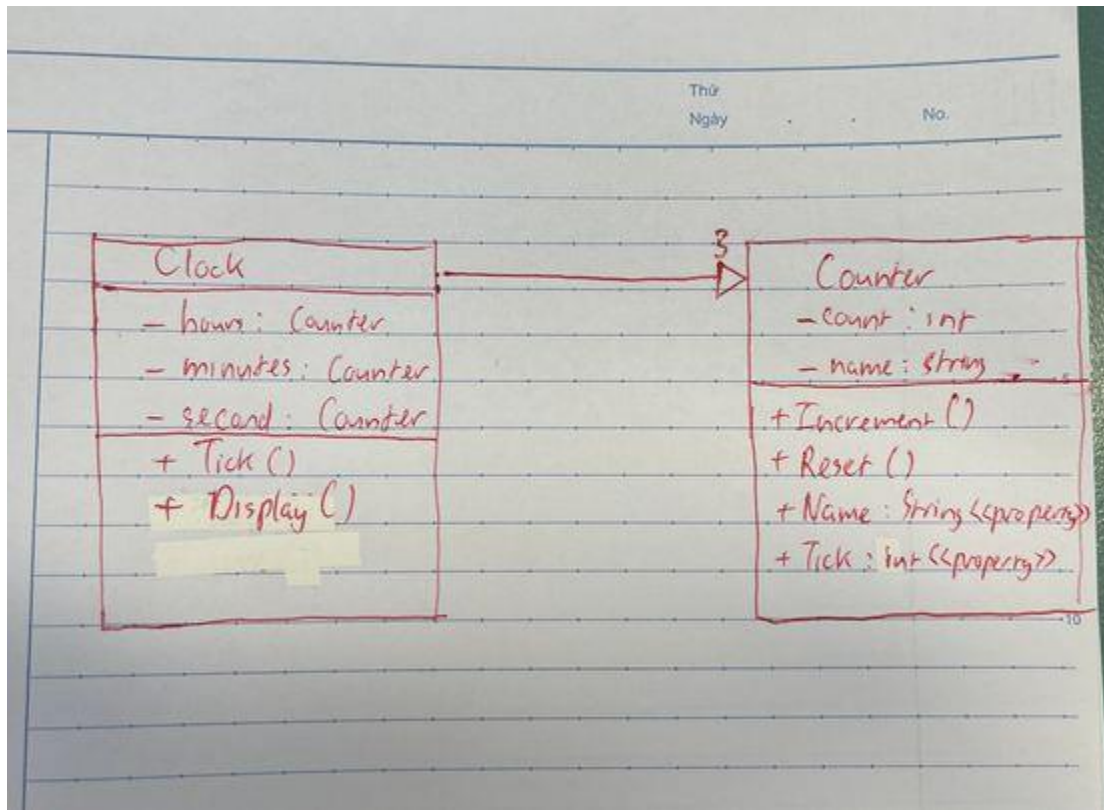 Thứ
Ngày . . No.
3
Clock
- hours : Counter
- minutes : Counter
- second : Counter
+ Tick ()
+ Display ()
Counter
- count : int
- name : string
+ Increment ()
+ Reset ()
+ Name : String <<property>>
+ Tick : int <<property>>
10